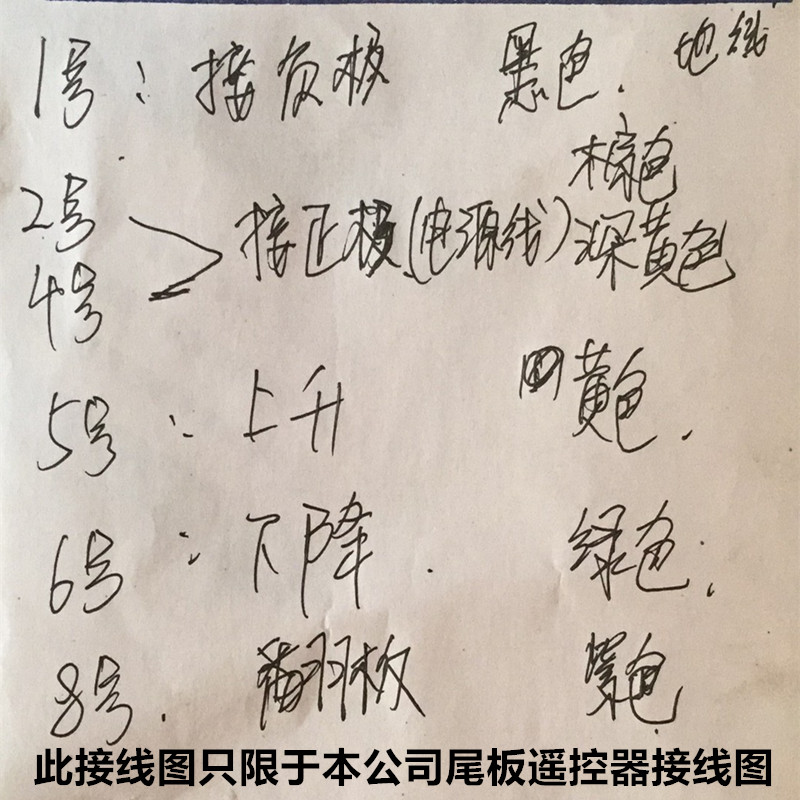 1号: 接负极 黑色. 地线
棕色
2号
接正极(电源线)深黄色
4号
5号: 上升 黄色.
6号: 下降. 绿色;
8号. 翻板 紫色
此接线图只限于本公司尾板遥控器接线图